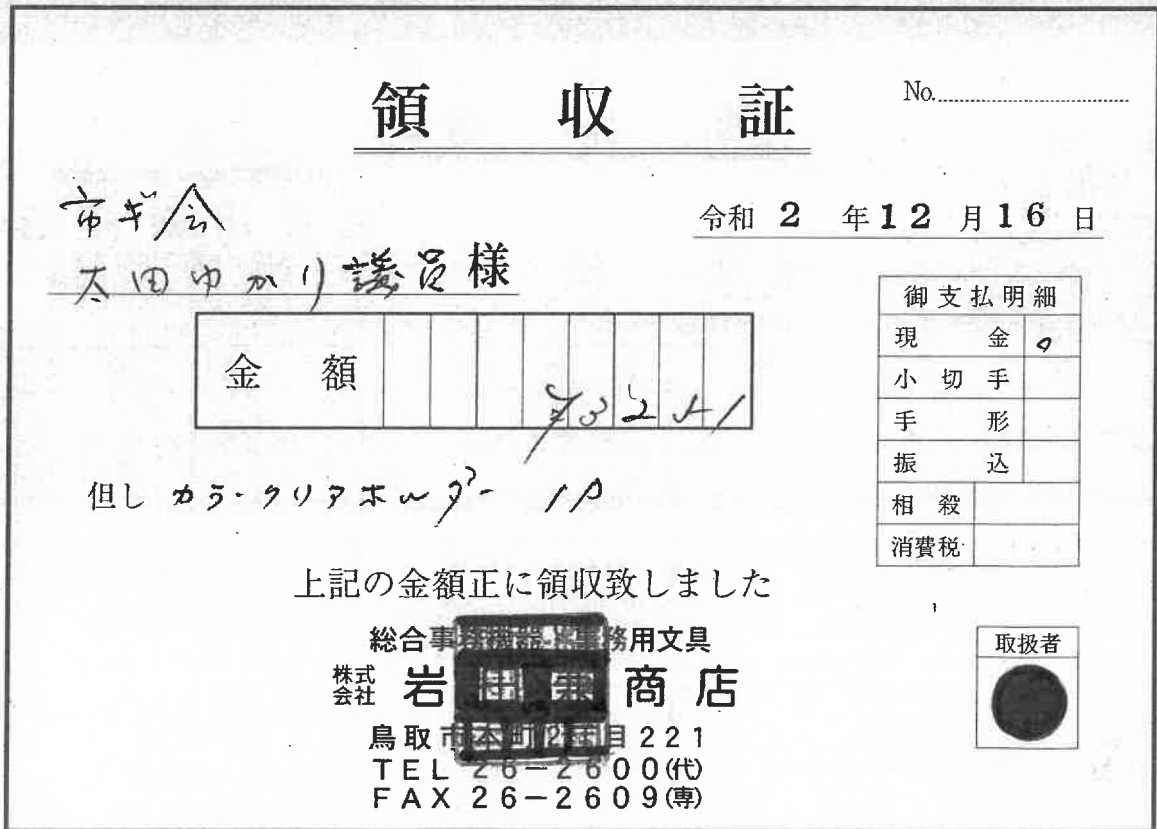 領収証
No.
市ギ会
太田ゆかり議員様
令和 2 年 12 月 16 日
金額 ¥3251
但し カラークリアホルダー 1P
御支払明細
現金
小切手
手形
振込
相殺
消費税
上記の金額正に領収致しました
総合事務機器・事務用文具
株式会社 岩 商店
鳥取市本町2丁目221
TEL 26-2600(代)
FAX 26-2609(専)
取扱者